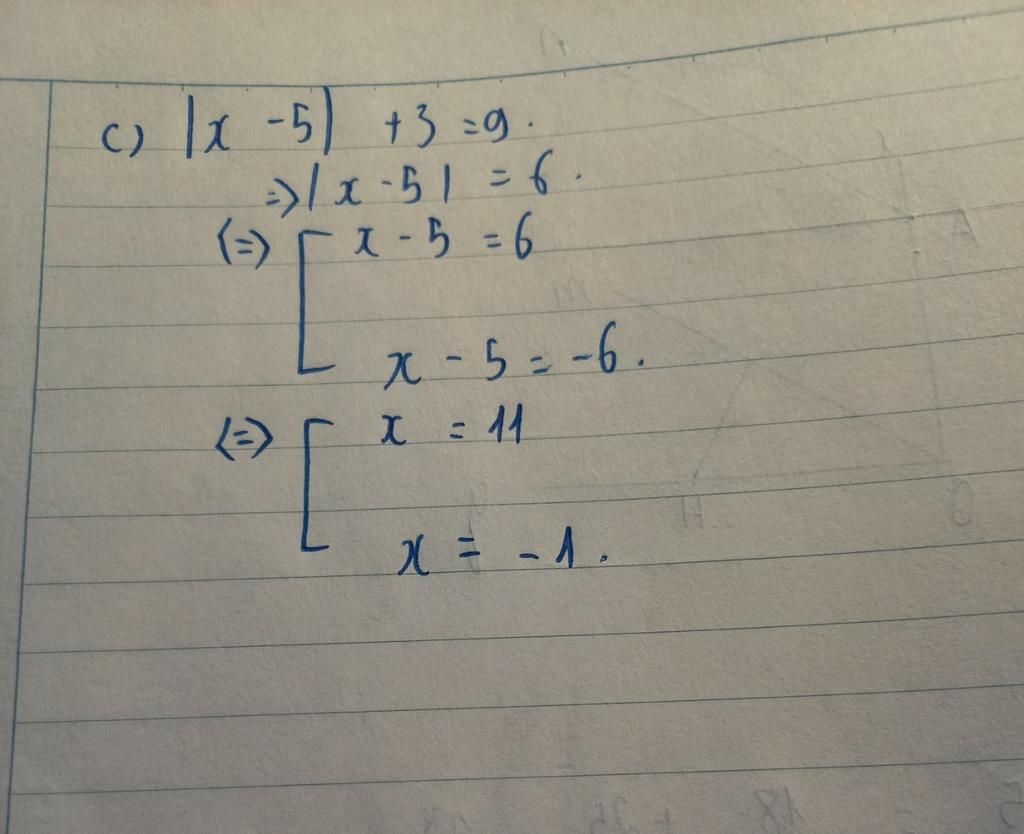 c) |x - 5| + 3 = 9.
=> |x - 5| = 6.
<=> [ x - 5 = 6
x - 5 = -6.
<=> [ x = 11
x = -1.